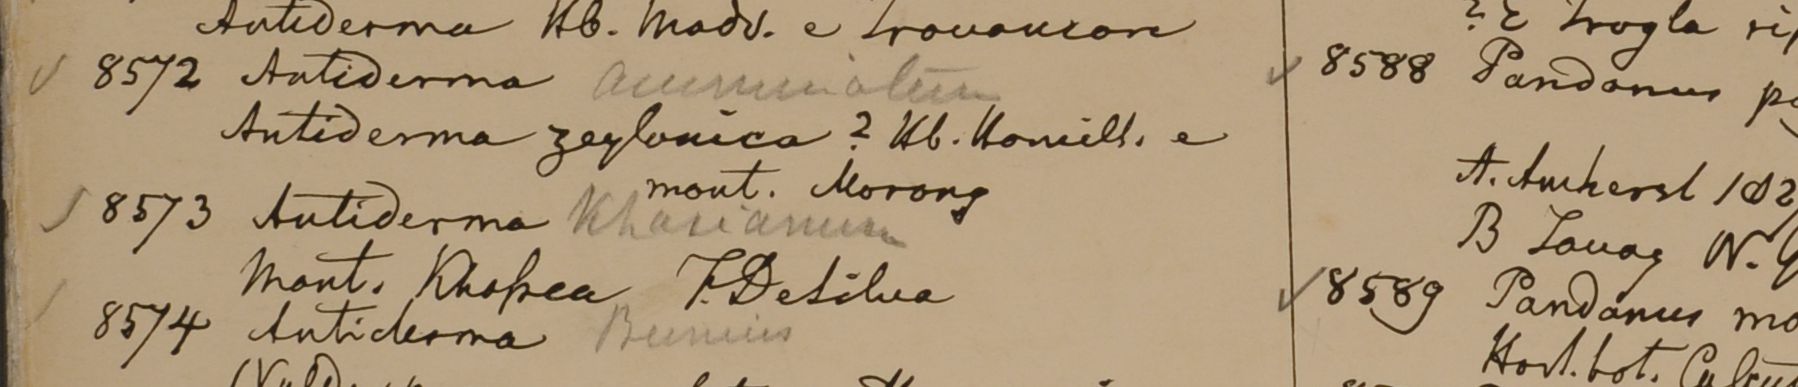 Antiderma Hb. Madr. e Travancore
✓ 8572 Antiderma acuminatum
Antiderma zeylanica? Hb. Hamilt. e
mont. Morong
✓ 8573 Antiderma Khasianum
Mont. Khasea F. DeSilva
8574 Antiderma Bunius
? E Trogla
✓ 8588 Pandanus
A. Amherst 182
B Tavoy W. G
✓ 8589 Pandanus mo
Hort. bot. Calcut